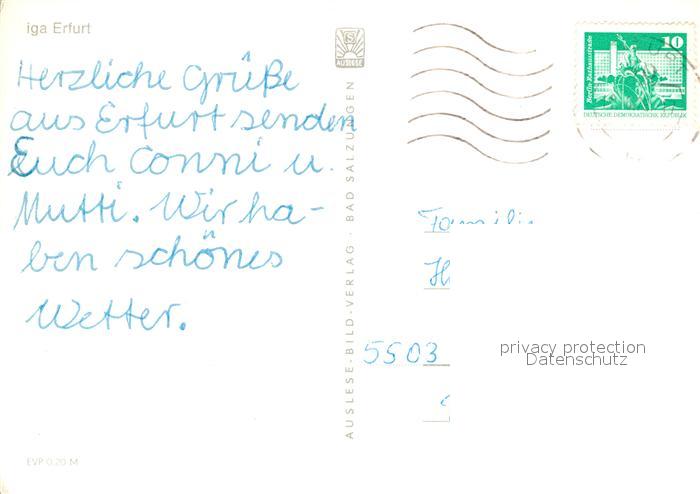 iga Erfurt
Herzliche Grüße
aus Erfurt senden
Euch Conni u.
Mutti. Wir ha-
ben schönes
Wetter.
EVP 0,20 M
AUSLESE
AUSLESE-BILD-VERLAG · BAD SALZUNGEN
10
Berlin, Rathausstraße
DEUTSCHE DEMOKRATISCHE REPUBLIK
5503
privacy protection
Datenschutz